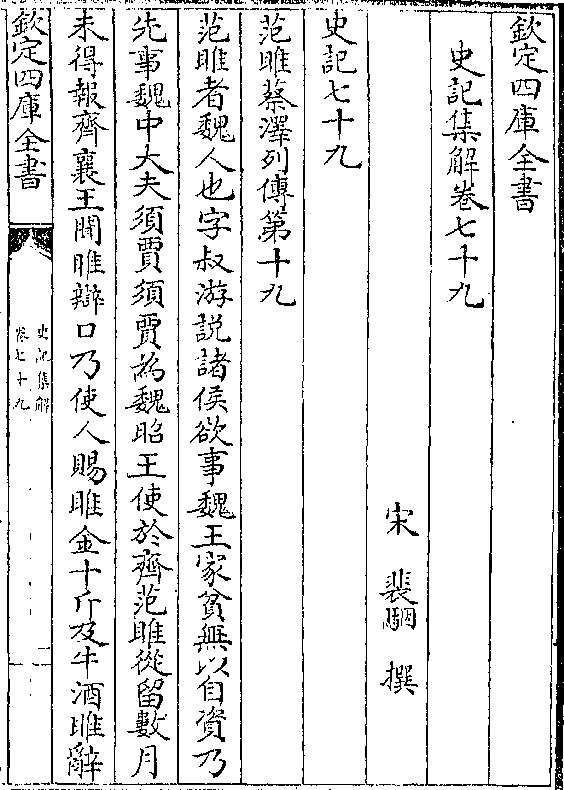 欽定四庫全書
史記集解卷七十九
宋 裴駰 撰
史記七十九
范睢蔡澤列傳第十九
范睢者魏人也字叔游説諸侯欲事魏王家貧無以自資乃
先事魏中大夫須賈須賈為魏昭王使於齊范睢從留數月
未得報齊襄王聞睢辯口乃使人賜睢金十斤及牛酒睢辭
欽定四庫全書
史記集解
卷七十九
一